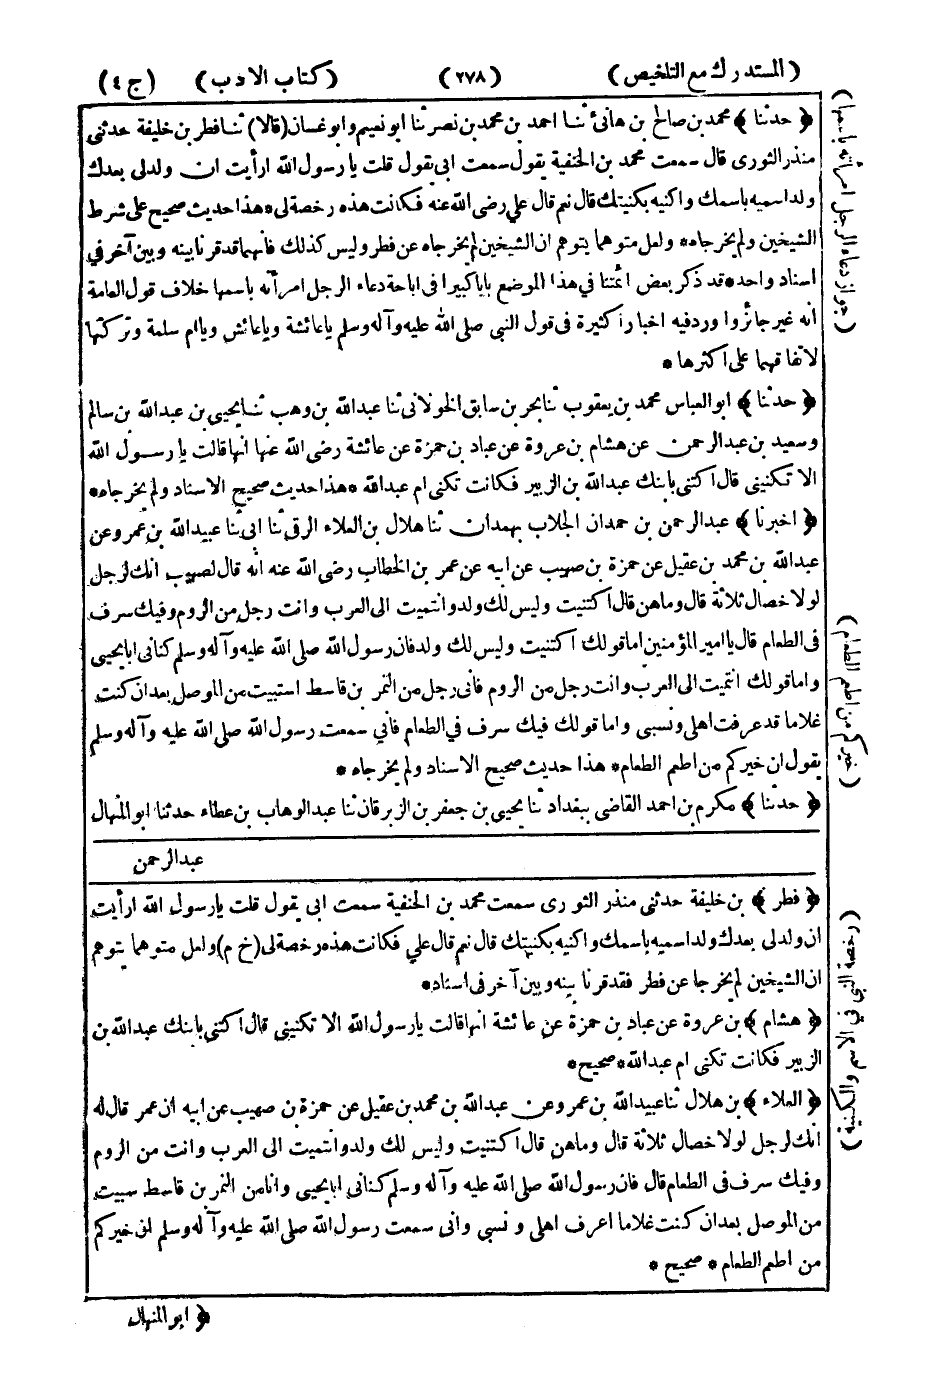 (المستدرك مع التلخيص) (٢٧٨) (كتاب الادب) (ج ٤)
﴿ حدثنا ﴾ محمد بن صالح بن هانئ ثنا احمد بن محمد بن نصر ثنا ابو نعيم وابو غسان (قالا) ثنا فطر بن خليفة حدثنى
منذر الثورى قال سمعت محمد بن الحنفية يقول سمعت ابى يقول قلت يا رسول الله ارأيت ان ولد لى بعدك
ولد اسميه باسمك واكنيه بكنيتك قال نعم قال على رضى الله عنه فكانت هذه رخصة لى * هذا حديث صحيح على شرط
الشيخين ولم يخرجاه * ولعل متوهما يتوهم ان الشيخين لم يخرجاه عن فطر وليس كذلك فانهما قد قرنا بينه وبين آخر فى
اسناد واحد * قد ذكر بعض ائمتنا في هذا الموضع بابا كبيرا فى اباحة دعاء الرجل امرأته باسمها خلاف قول العامة
أنه غير جائز واورد فيه اخبارا كثيرة فى قول النبي صلى الله عليه وآله وسلم يا عائشة ويا عائش ويا ام سلمة وتركتها
لاتفاقهما على اكثرها *
﴿ حدثنا ﴾ ابو العباس محمد بن يعقوب ثنا بحر بن سابق الخولانى ثنا عبدالله بن وهب ثنا يحيى بن عبدالله بن سالم
وسعيد بن عبدالرحمن عن هشام بن عروة عن عباد بن حمزة عن عائشة رضى الله عنها انها قالت يا رسول الله
الا تكنينى قال اكتنى بابنك عبدالله بن الزبير فكانت تكنى ام عبدالله * هذا حديث صحيح الاسناد ولم يخرجاه *
﴿ اخبرنا ﴾ عبدالرحمن بن حمدان الجلاب بهمدان ثنا هلال بن العلاء الرقى ثنا ابى ثنا عبيدالله بن عمرو عن
عبدالله بن محمد بن عقيل عن حمزة بن صهيب عن ابيه عن عمر بن الخطاب رضى الله عنه انه قال لصهيب انك لرجل
لولا خصال ثلاثة قال وما هن قال اكتنيت وليس لك ولد وانتميت الى العرب وانت رجل من الروم وفيك سرف
فى الطعام قال يا امير المؤمنين اما قولك اكتنيت وليس لك ولد فان رسول الله صلى الله عليه وآله وسلم كنانى ابا يحيى
واما قولك انتميت الى العرب وانت رجل من الروم فانى رجل من النمر بن قاسط استبيت من الموصل بعد ان كنت
غلاما قد عرفت اهلى ونسبى واما قولك فيك سرف في الطعام فانى سمعت رسول الله صلى الله عليه وآله وسلم
يقول ان خيركم من اطعم الطعام * هذا حديث صحيح الاسناد ولم يخرجاه *
﴿ حدثنا ﴾ مكرم بن احمد القاضى ببغداد ثنا يحيى بن جعفر بن الزبرقان ثنا عبدالوهاب بن عطاء حدثنا ابو المنهال
عبدالرحمن
﴿ فطر ﴾ بن خليفة حدثنى منذر الثورى سمعت محمد بن الحنفية سمعت ابى يقول قلت يا رسول الله ارأيت
ان ولد لى بعدك ولد اسميه باسمك واكنيه بكنيتك قال نعم قال علي فكانت هذه رخصة لى (خ م) ولعل متوهما يتوهم
ان الشيخين لم يخرجا عن فطر فقد قرنا بينه وبين آخر فى اسناد *
﴿ هشام ﴾ بن عروة عن عباد بن حمزة عن عائشة انها قالت يا رسول الله الا تكنينى قال اكتنى بابنك عبدالله بن
الزبير فكانت تكنى ام عبدالله * صحيح *
﴿ العلاء ﴾ بن هلال ثنا عبيدالله بن عمرو عن عبدالله بن محمد بن عقيل عن حمزة بن صهيب عن ابيه ان عمر قال له
انك لرجل لولا خصال ثلاثة قال وما هن قال اكتنيت وليس لك ولد وانتميت الى العرب وانت من الروم
وفيك سرف فى الطعام قال فان رسول الله صلى الله عليه وآله وسلم كنانى ابا يحيى وانا من النمر بن قاسط سبيت
من الموصل بعد ان كنت غلاما اعرف اهلى ونسبى وانى سمعت رسول الله صلى الله عليه وآله وسلم ان خيركم
من اطعم الطعام * صحيح *
﴿ ابو المنهال
(جواز دعاء الرجل امرأته باسمها)
(خيركم من اطعم الطعام)